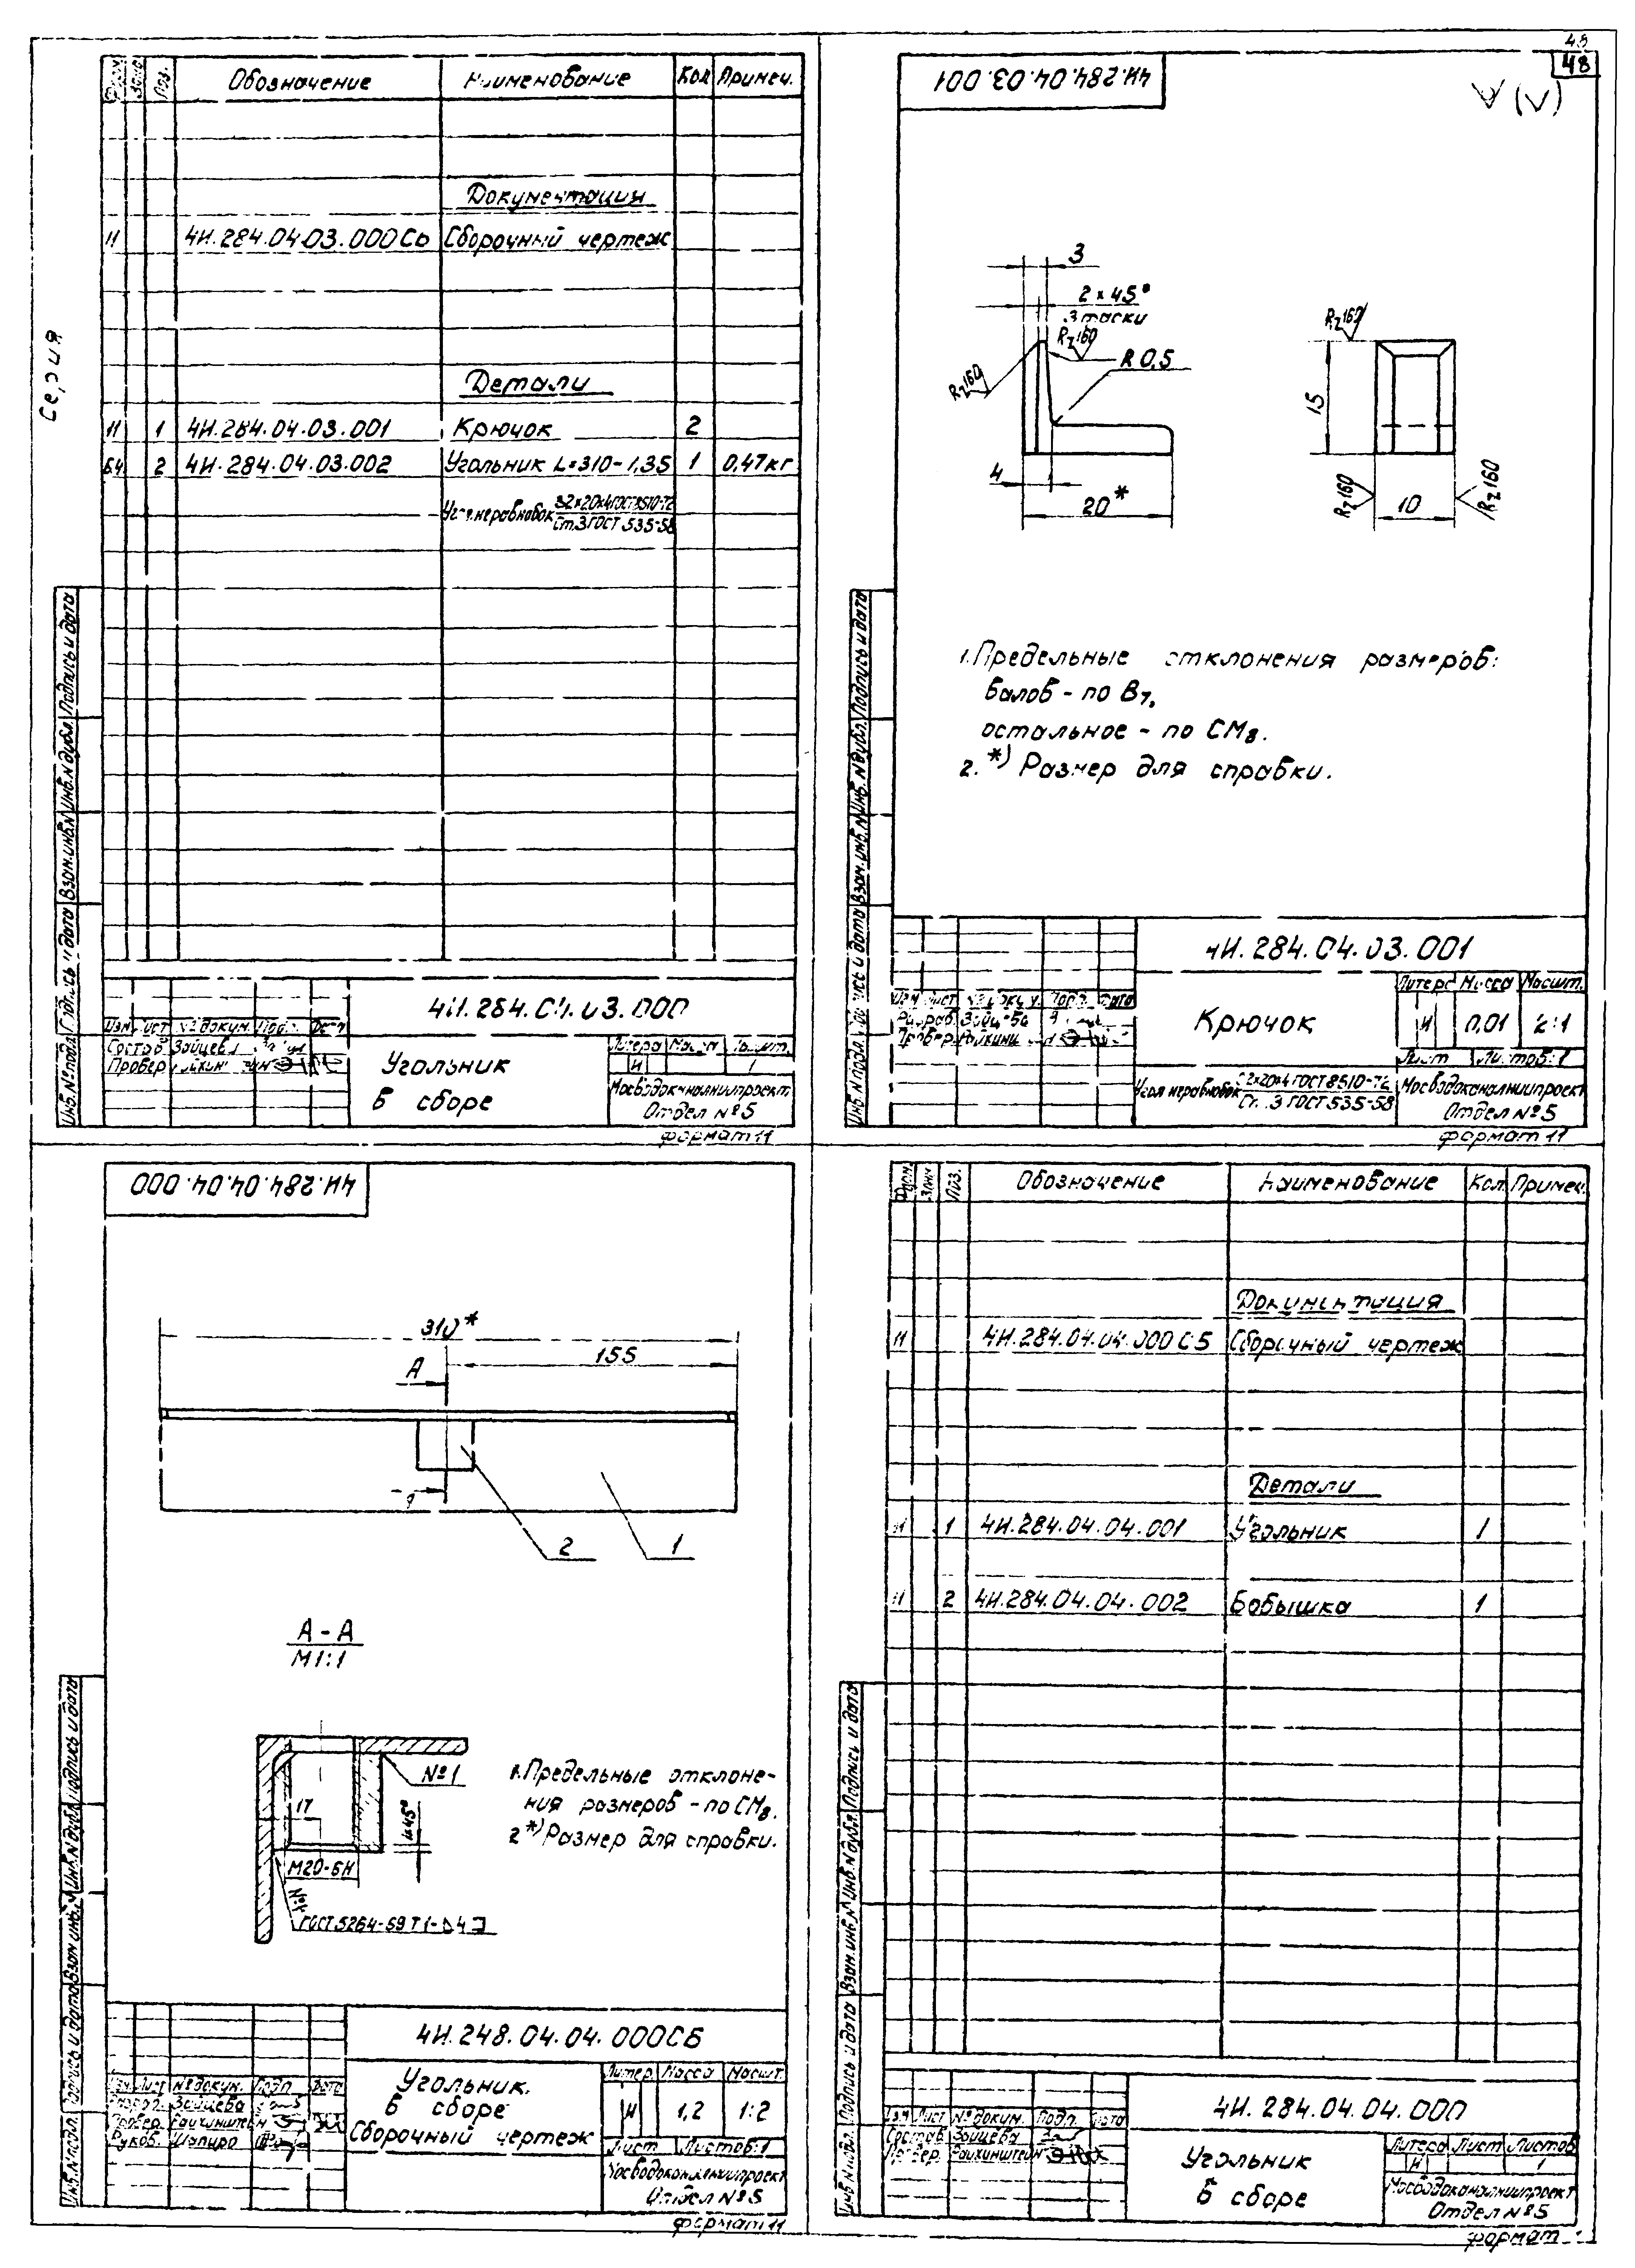 48
48
Серия
Поз. Обозначение Наименование Кол Примеч.
Документация
11 4И.284.04.03.000СБ Сборочный чертеж
Детали
11 1 4И.284.04.03.001 Крючок 2
Б4 2 4И.284.04.03.002 Угольник L=310-1,35 1 0,47кг
Угол.неравнобок 32×20×4 ГОСТ 8510-72
Ст.3 ГОСТ 535-58
Инв.№подл. Подпись и дата Взам.инв.№ Инв.№дубл. Подпись и дата
4И.284.04.03.000
Изм Лист № докум. Подп.
Состав Зайцева
Провер
Угольник
в сборе
Литера
И 1
Мосводоканалниипроект
Отдел №5
формат 11
4И.284.04.03.001
3
2×45°
3 фаски
Rz160
Rz160
R 0,5
4
20*
Rz160
15
Rz160
10
Rz160
1. Предельные отклонения размеров:
валов - по В7,
остальное - по СМ8.
2. *) Размер для справки.
Инв.№подл. Подпись и дата Взам.инв.№ Инв.№дубл. Подпись и дата
4И.284.04.03.001
Изм Лист № докум. Подп. Дата
Разраб. Зайцева
Провер
Крючок
Литера Масса Масшт.
И 0,01 2:1
Лист Листов:1
Угол неравнобок 32×20×4 ГОСТ 8510-72
Ст.3 ГОСТ 535-58
Мосводоканалниипроект
Отдел №5
формат 11
4И.284.04.04.000
310*
155
А
2
1
А-А
М1:1
№1
17
М20-6Н
№1
ГОСТ 5264-69 Т1-⊿4
1. Предельные отклоне-
ния размеров - по СМ8.
2 *) Размер для справки.
Инв.№подл. Подпись и дата Взам.инв.№ Инв.№дубл. Подпись и дата
4И.248.04.04.000СБ
Изм Лист № докум. Подп Дата
Разраб. Зайцева
Провер. Райхинштейн
Руков. Шапиро
Угольник.
в сборе
Сборочный чертеж
Литер. Масса Масшт.
И 1,2 1:2
Лист Листов:1
Мосводоканалниипроект
Отдел №5
формат 11
Форм. Зона Поз. Обозначение Наименование Кол. Примеч.
Документация
11 4И.284.04.04.000СБ Сборочный чертеж
Детали
11 1 4И.284.04.04.001 Угольник 1
11 2 4И.284.04.04.002 Бобышка 1
Инв.№подл. Подпись и дата Взам.инв.№ Инв.№дубл. Подпись и дата
4И.284.04.04.000
Изм Лист № докум. Подп. Дата
Состав. Зайцева
Провер. Райхинштейн
Угольник
в сборе
Литера Лист Листов
И 1
Мосводоканалниипроект
Отдел №5
формат